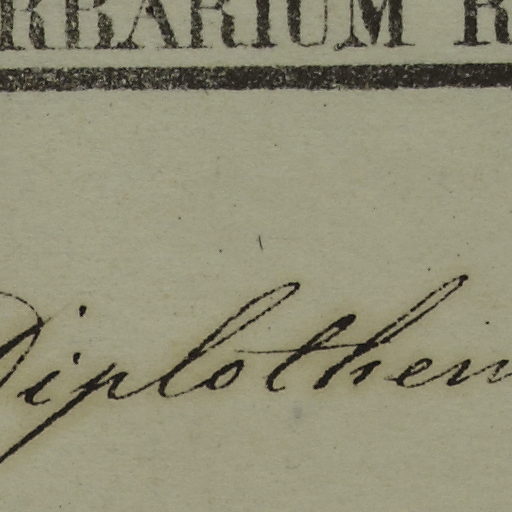 RBARIUM R
Diplothem